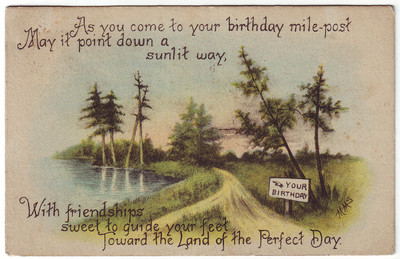 As you come to your birthday mile-post
May it point down a
sunlit way,
YOUR
BIRTHDAY
With friendships
sweet to guide your feet
Toward the Land of the Perfect Day.